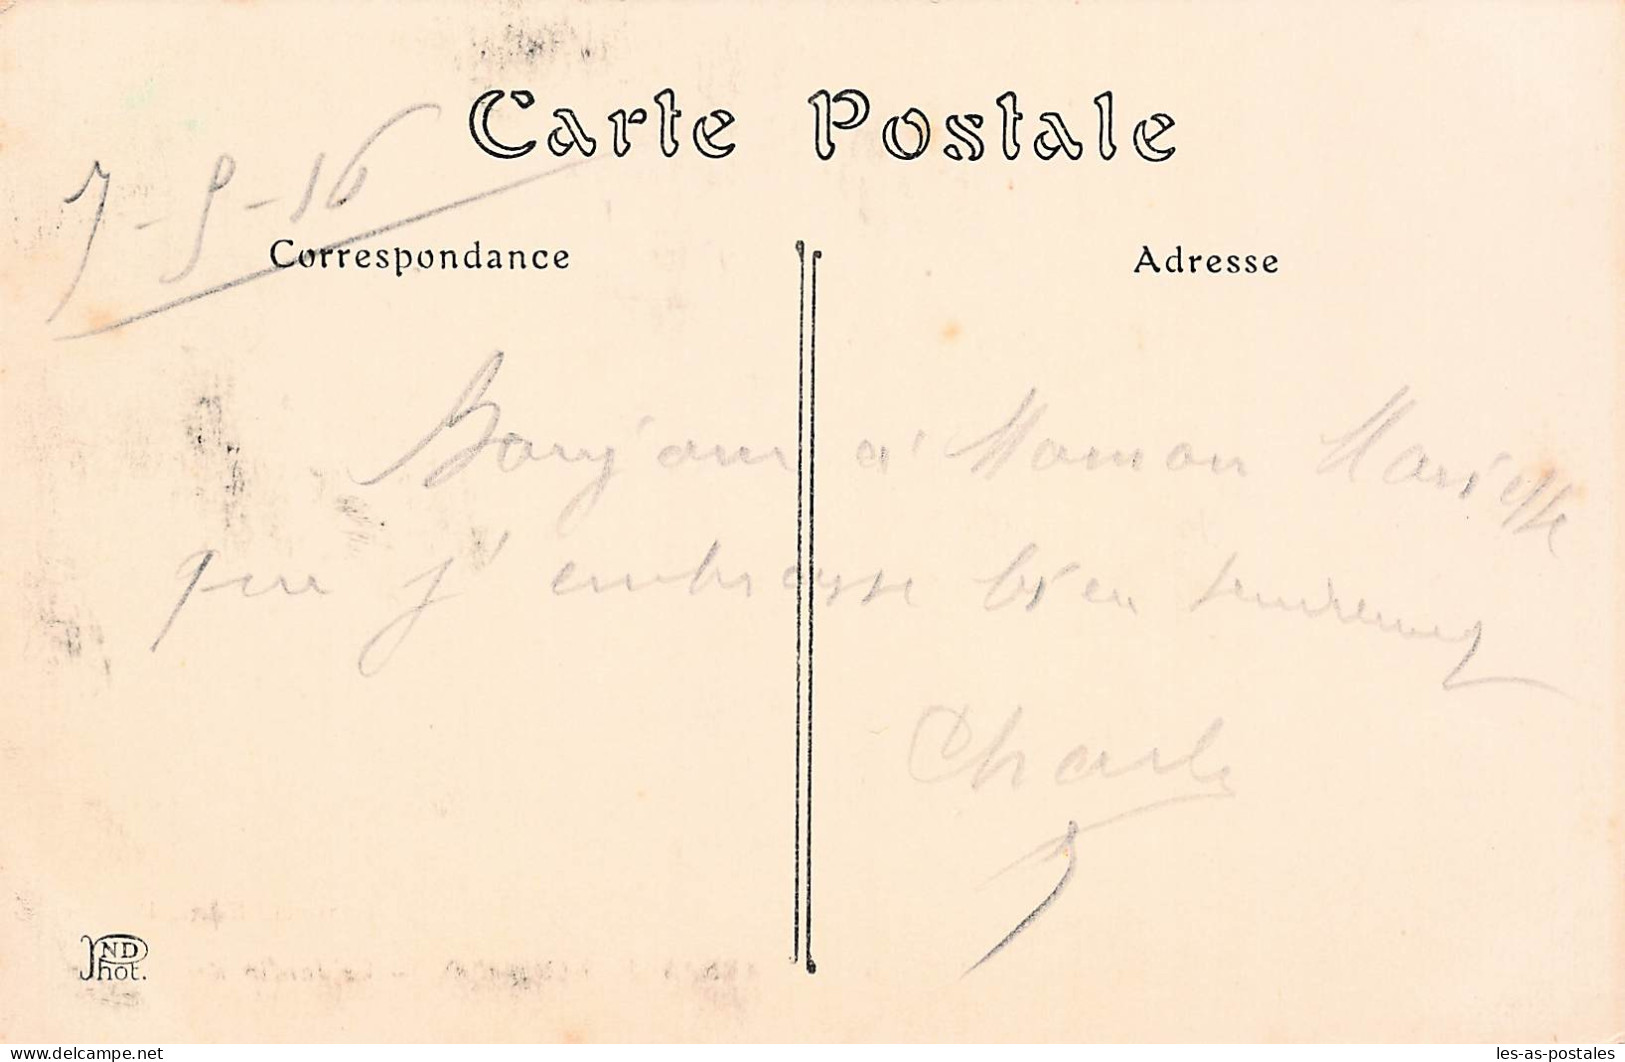 Carte Postale
7-5-16
Correspondance
Adresse
Bonjour a' Maman Mariette
que j'embrasse bien tendrement
Charles
ND
Phot.
www.delcampe.net
les-as-postales